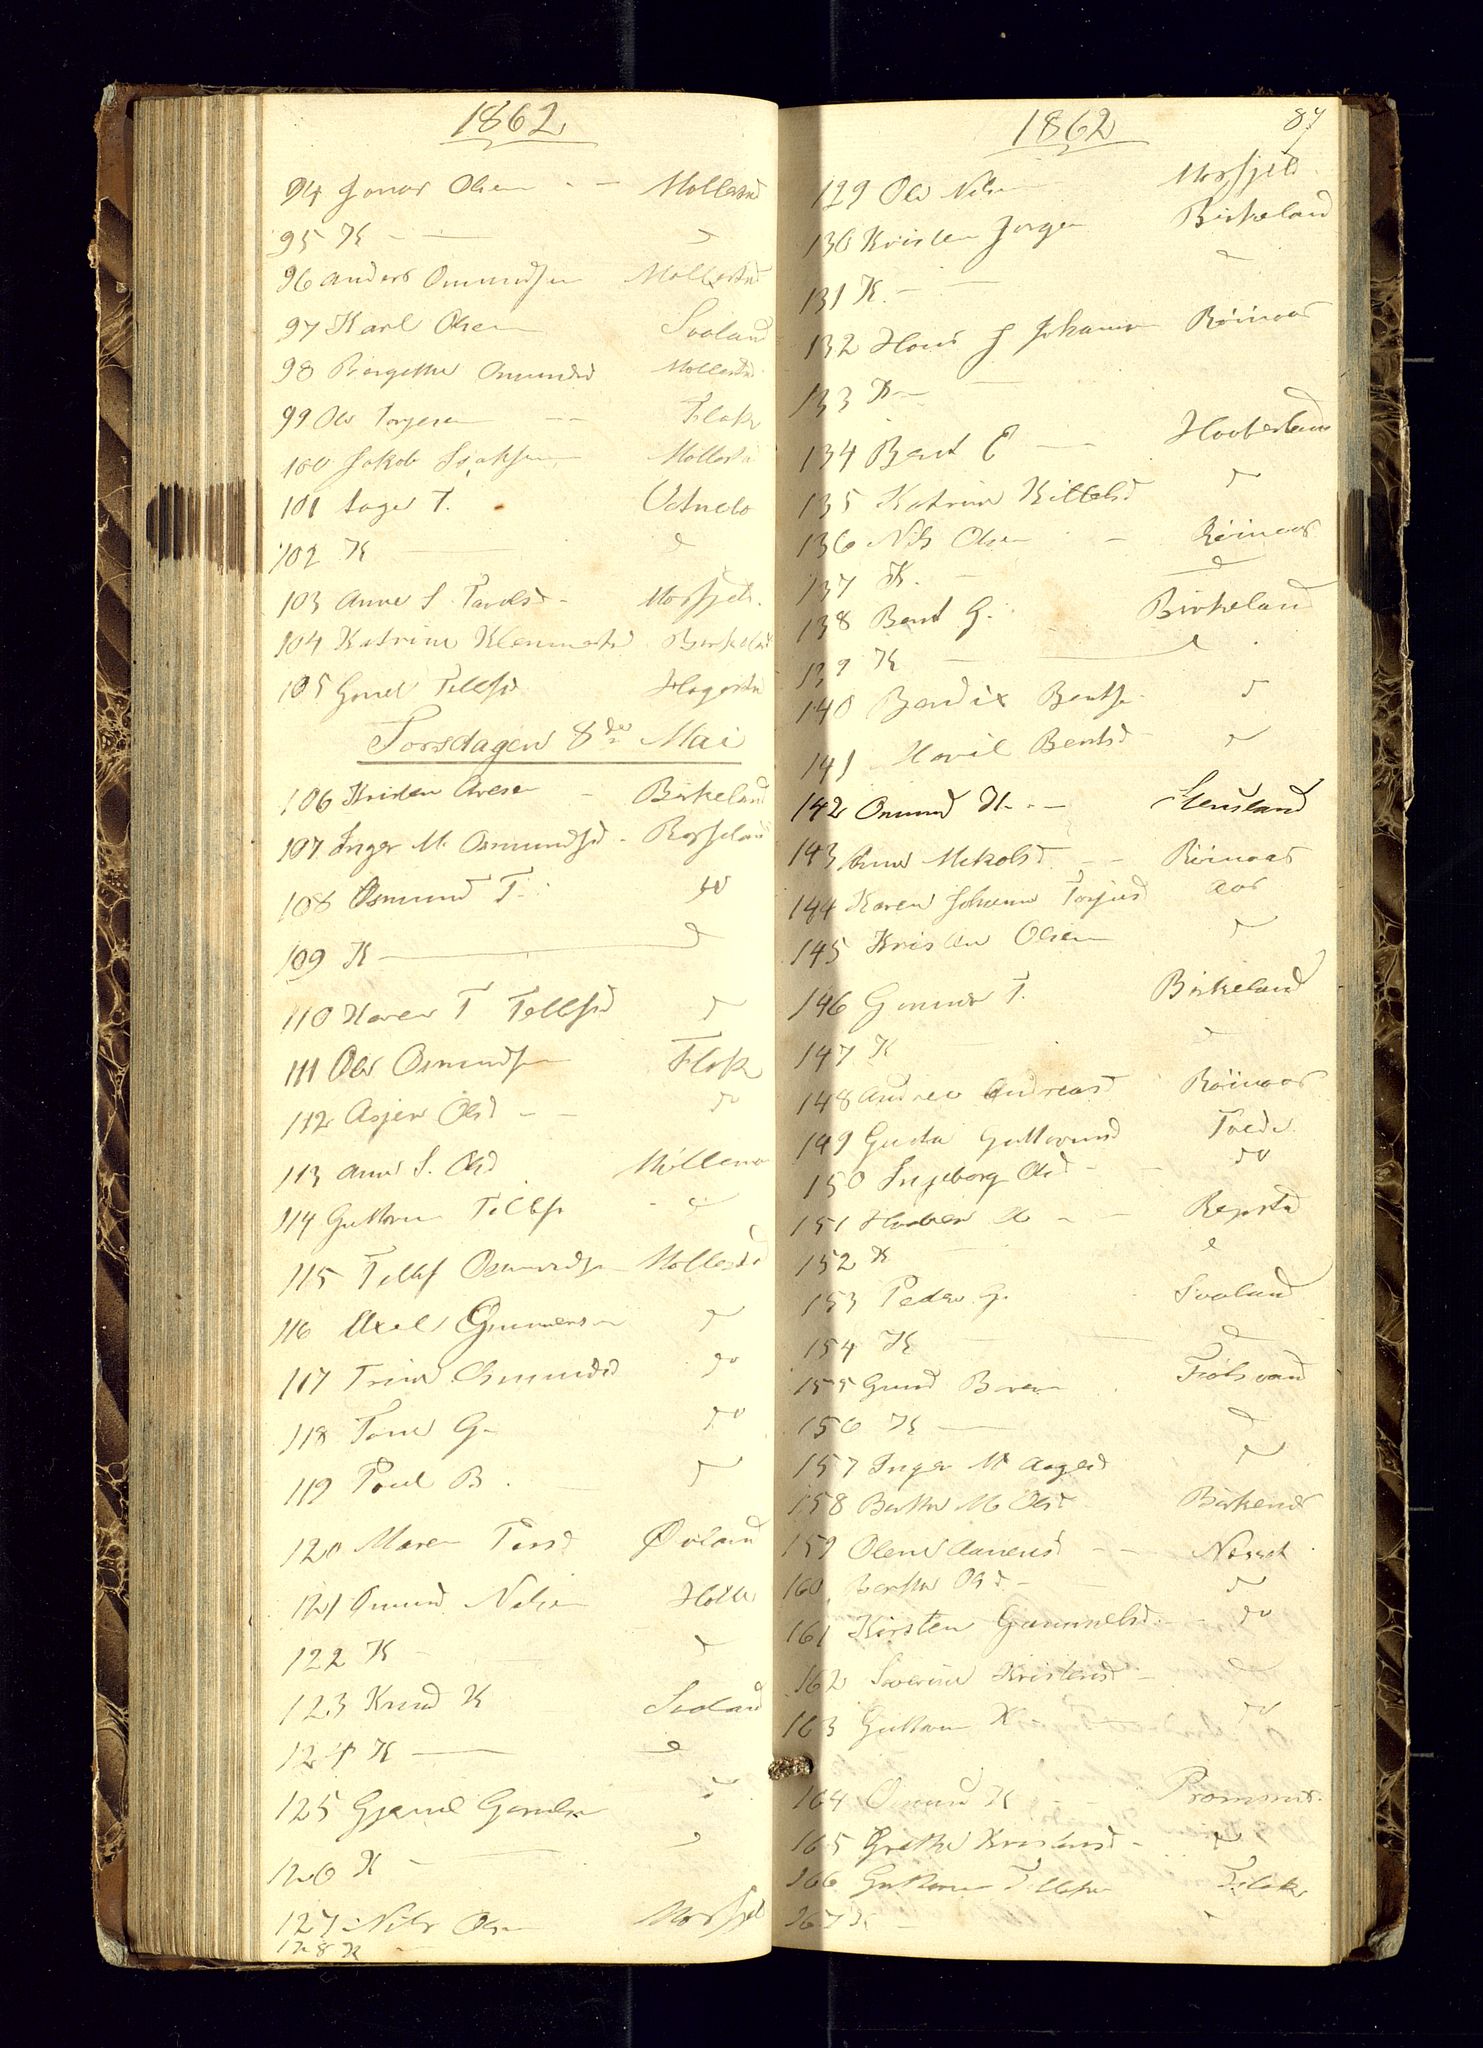 1862
94 Gonar Olsen - - Mollestad
95 K - — d
96 Anders Osmundsen Mollestad
97 Karl Olsen Svaland
98 Birgethe Osmundsd Mollestad
99 Ole Torgesen - - Flak
100 Jakob Isaksen Mollestad
101 Aage T. Vatnedo
102 K — d
103 Anne S. Tarelsd - Mosfjeld.
104 Katrine Klemmetsd Birkeland
105 Gunil Tellefsd Hagestad
Torsdagen 8de Mai
106 Kristen Aresen - Birkeland
107 Inger M. Osmundsd - Rosseland
108 Osmund T. do
109 K — d
110 Karen T Tellefsd d
111 Ole Osmundsen Flak
112 Asjer Olsd - - do
113 Anne S. Olsd Mollena
114 Guttorm Tellefs - d
115 Tellef Osmundsen Mollestad
116 Axel Gunnersen d
117 Trine Osmundsd do
118 Tone G. do
119 Poul B. d
120 Maren Persd Øvland
121 Omund Nelsen Holte
122 K - d
123 Knud K Svaland
124 K — d
125 Gjeruel Gundersen d
126 K — d
127 Nils Olsen Mosfjel
128 K -
1862 87
129 Ole Nilsen Mosfjeld.
130 Kristen Jorgen Birkeland
131 K. - — d
132 Hans J Johannsen Röinaas
133 K -
134 Bent E - — Haaberland
135 Katrine Kittelsd d
136 Nils Olsen - Röinaas
137 K. - d
138 Bent G. Birkeland
139 K - d
140 Bendix Bentsen d
141 Maril Bentsd d
142 Omund K. - - Stensland
143 Anne Mikolsd - - Röinaas
144 Karen Johanne Torjusd Aas
145 Kristen Olsen d
146 Gunner T. Birkeland
147 K d
148 Andrea Andreasd Röinaas
149 Gusta Guttormsd Tvede.
150 Ingeborg Olsd - - do
151 Haaver A - - Repstad
152 K d
153 Peder G. Svaland
154 K — d
155 Gund Boresen Fiolsvand
156 K — d
157 Inger M. Aagesd d
158 Berthe M. Olsd. Birkenes
159 Olene Aanensd - - Næset
160 Berthe Olsd - - d
161 Kirsten Gunnuelsd. - do
162 Severine Kristensd - do
163 Guttorm K - do
164 Osmund K - - Prømsnes.
165 Grethe Kristensd - d
166 Guttorm Tellefsen Flak
167 K - d